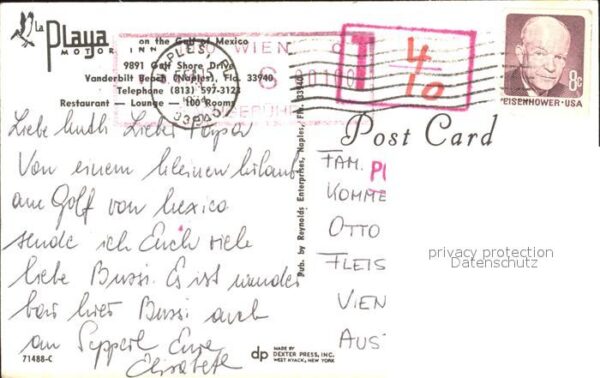 La Playa
MOTOR INN
on the Gulf of Mexico
9891 Gulf Shore Drive
Vanderbilt Beach (Naples), Fla. 33940
Telephone (813) 597-3123
Restaurant — Lounge — 100 Rooms
WIEN
T 4/10
8c
EISENHOWER·USA
Post Card
Liebe Mutti Lieber Papa
Von einem kleinen Urlaub
am Golf von Mexico
sende ich Euch viele
liebe Bussi. Es ist wunder
bar hier Bussi auch
an Pepperl Eure
Elisabeth
Pub. by Reynolds Enterprises, Naples, Fla. 33940
FAM.
KOMME
OTTO
FLEIS
VIEN
AUS
privacy protection
Datenschutz
71488-C
dp MADE BY
DEXTER PRESS, INC.
WEST NYACK, NEW YORK